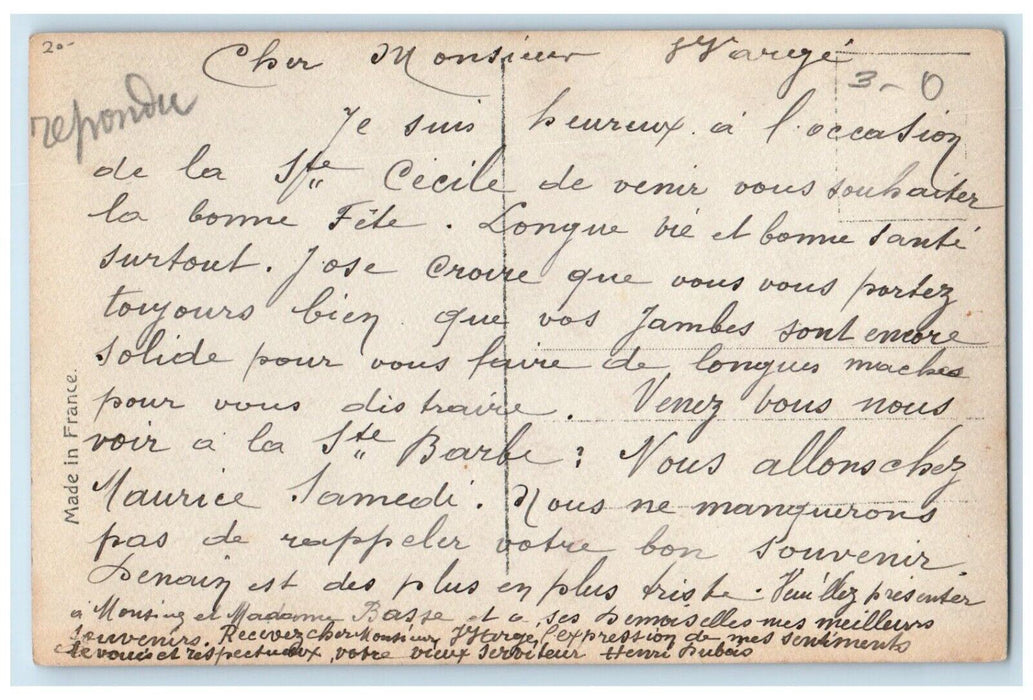 20-
Cher Monsieur
3-0
repondu
Je suis heureux à l'occasion
de la Ste Cécile de venir vous souhaiter
la bonne Fête. Longue vie et bonne santé
surtout. J'ose croire que vous vous portez
toujours bien que vos jambes sont encore
solide pour vous faire de longues maches
pour vous distraire. Venez vous nous
voir à la Ste Barbe? Nous allons chez
Maurice Samedi. Nous ne manquerons
pas de rappeler votre bon souvenir.
Denain est des plus en plus triste. Veuillez présenter
à Monsieur et Madame Basse et a ses Demoiselles mes meilleurs
souvenirs. Recevez cher Monsieur l'expression de mes sentiments
devoués et respectueux, votre vieux serviteur Henri Dubois
Made in France.